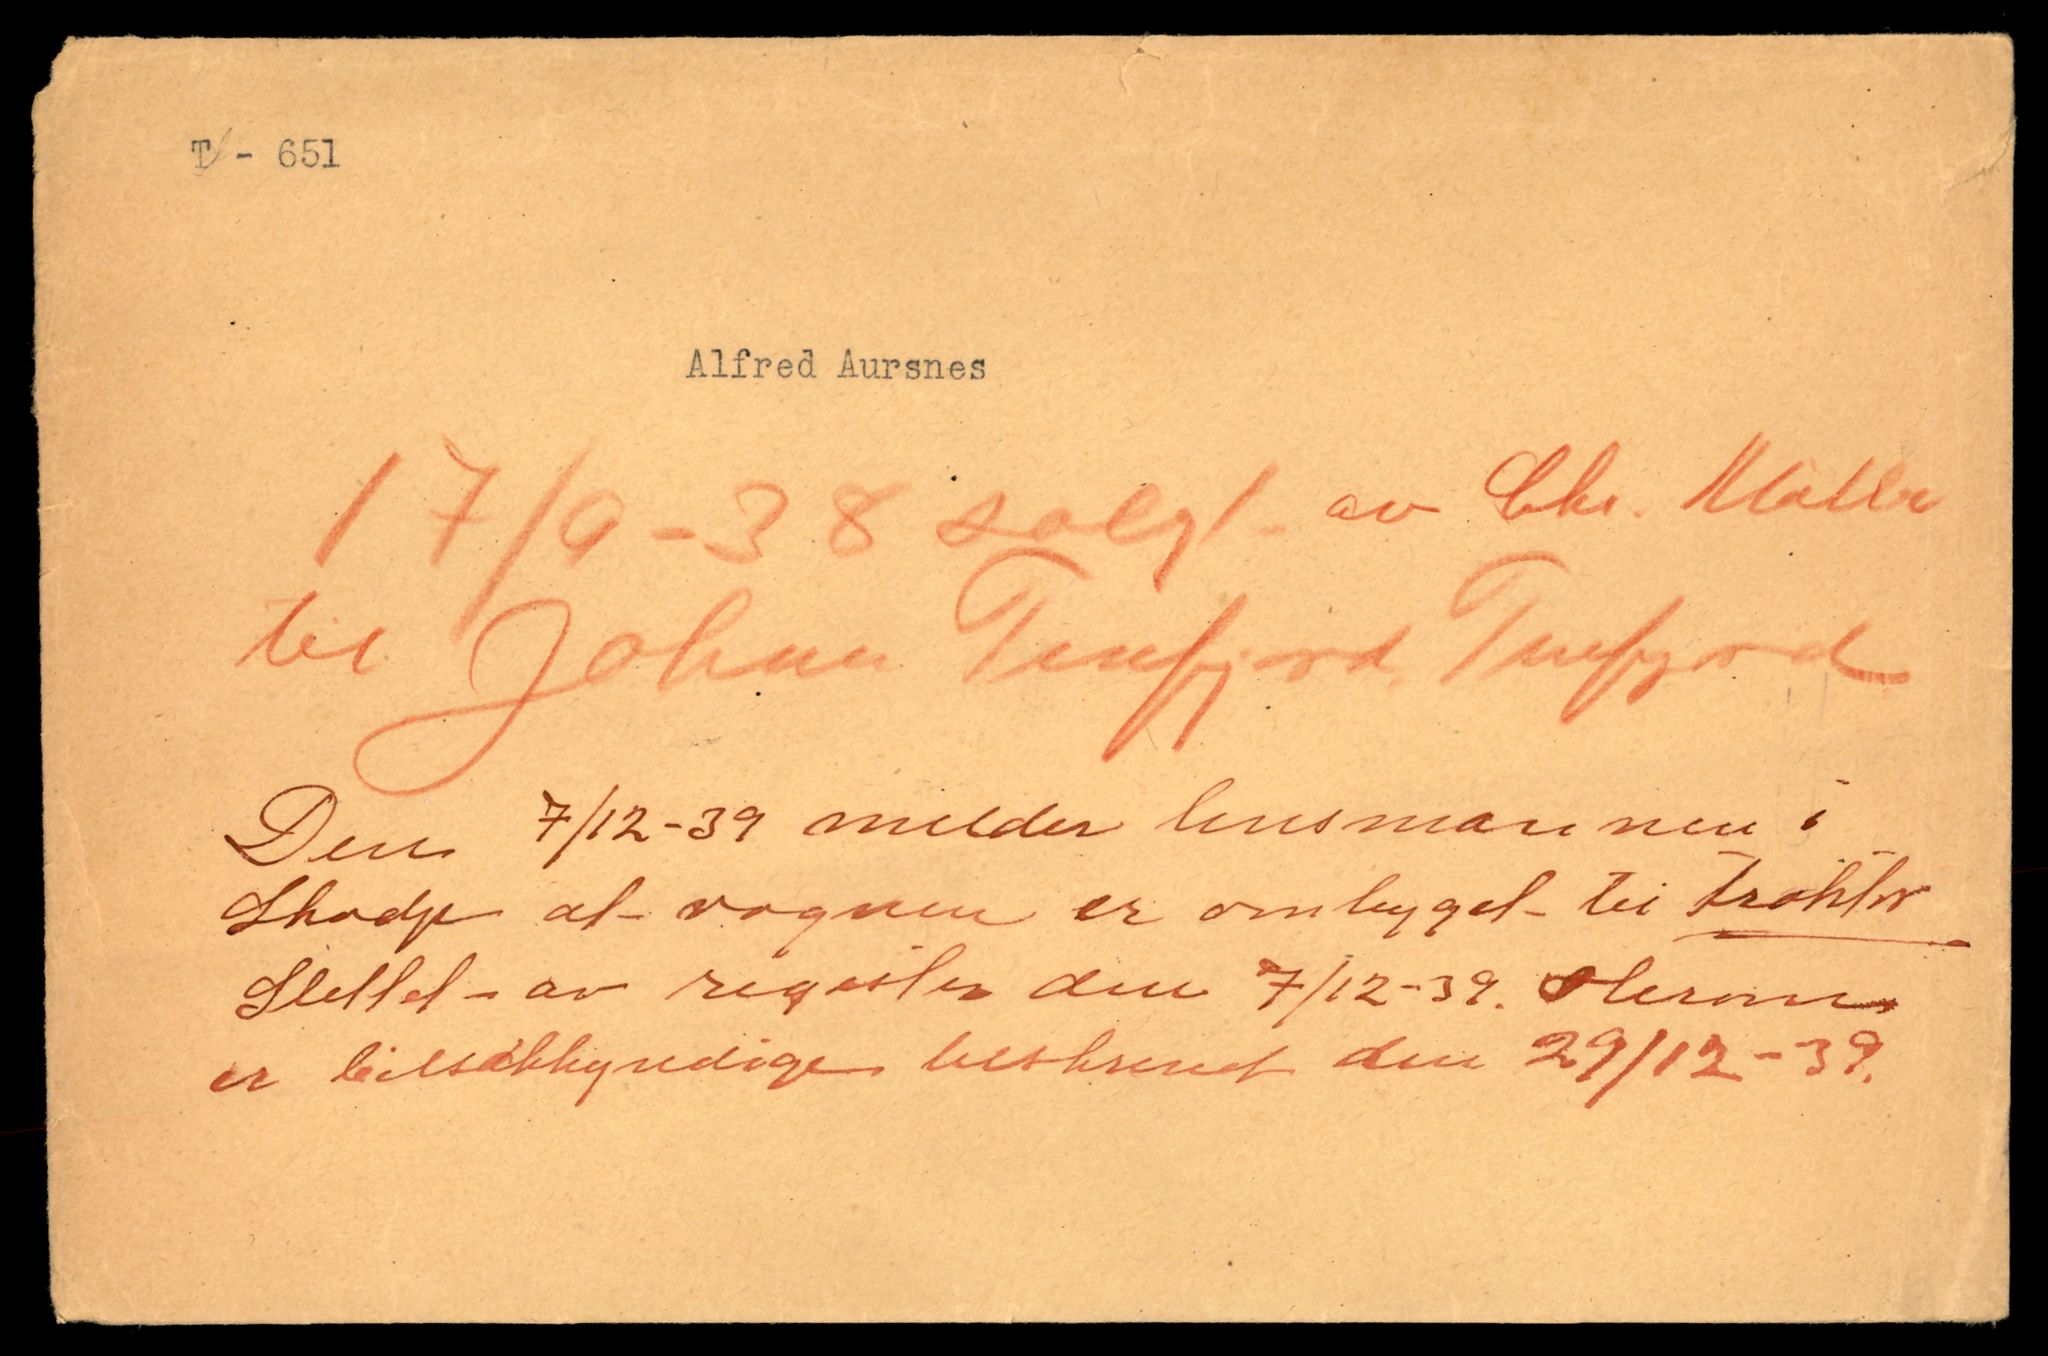 T - 651
Alfred Aursnes
17/9-38 solgt av Chr. Møller
til Johan Tenfjord, Tenfjord
Den 7/12-39 melder lensmannen i
Skodje at vognen er ombyget til traktor
Slettet av register den 7/12-39. Herom
er bilsakkyndige beskrevet den 29/12-39.